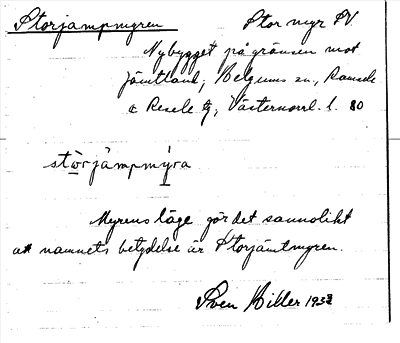 Storjämpmyren Stor myr SV
Nybygget på gränsen mot
Jämtland; Helgums sn., Ramsele
& Resele tg, Västernorrl. l. 80
stòrjämpmýra
Myrens läge gör det sannolikt
att namnets betydelse är Storjämtmyren.
Sven Hiller 1932